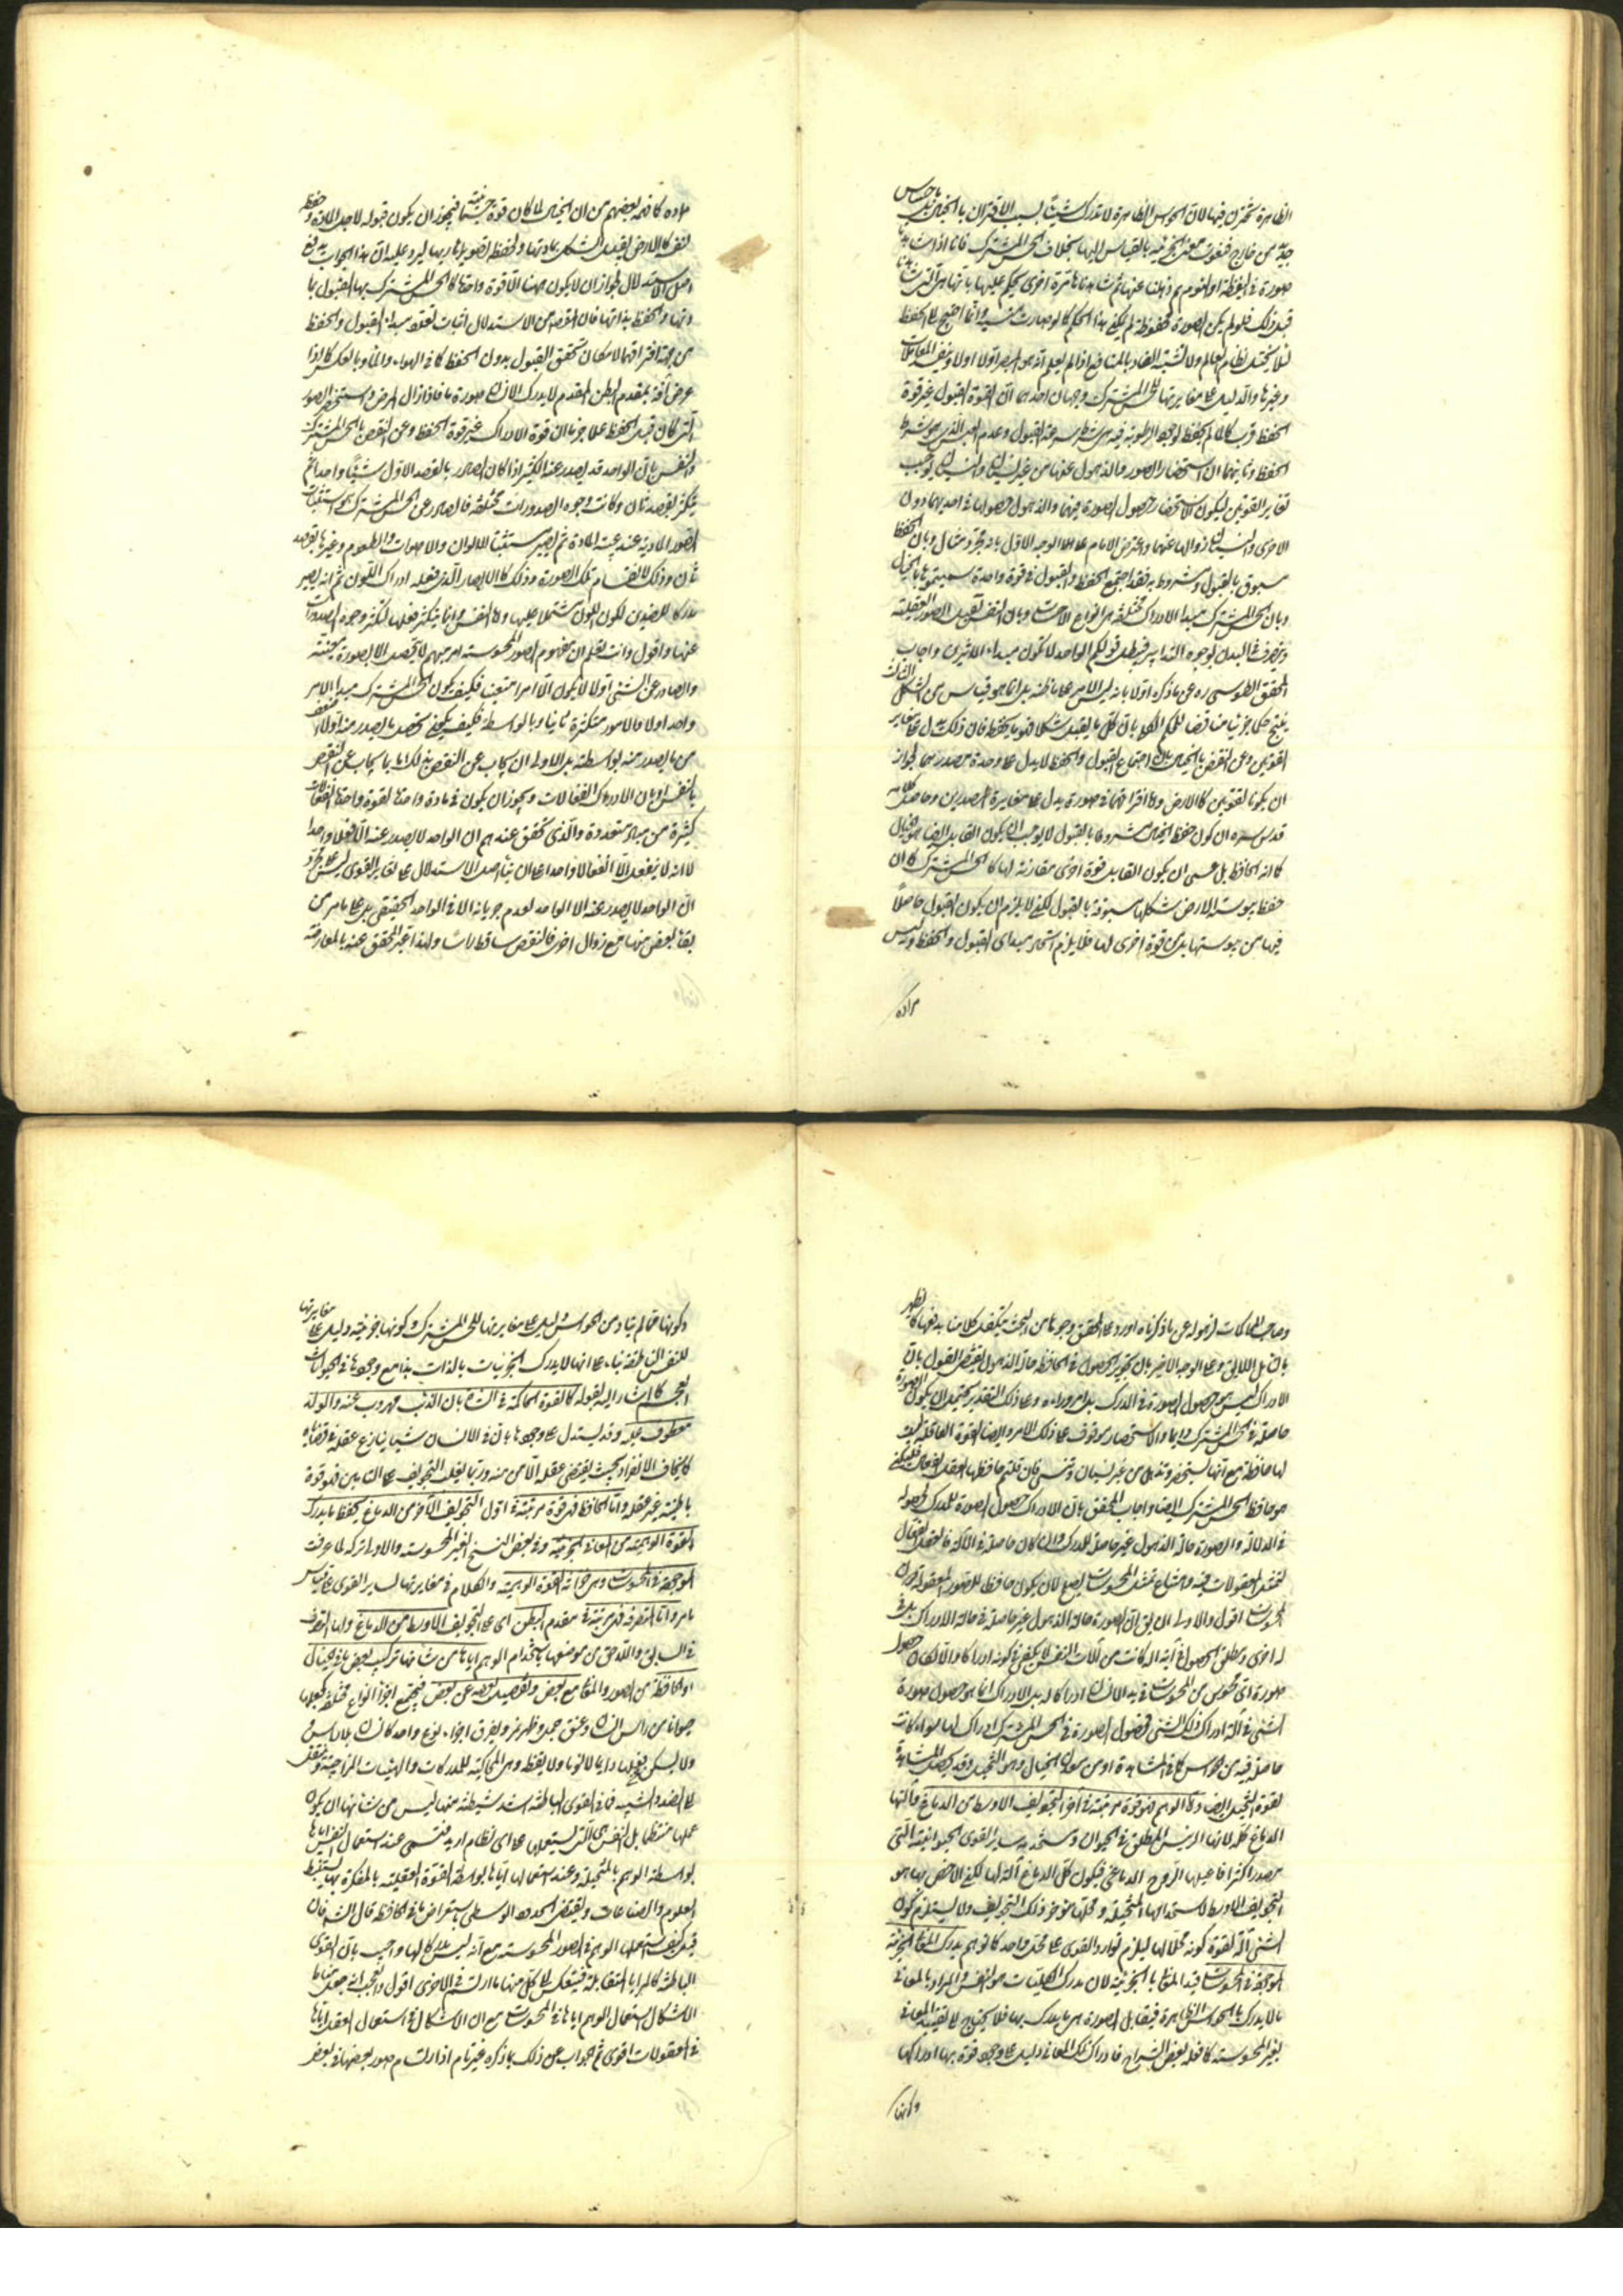 الظاهرة تختزن فيها لان الحواس الظاهرة لا تدرك شيئا بسبب الاقتران بالخيال بل باحساس
جديد من خارج فتفوت معنى الخزنية بالقياس اليها بخلاف الحس المشترك فانا اذا شاهدنا
صورة في اليقظة او النوم ثم ذهلنا عنها ثم شاهدناها مرة اخرى نحكم عليها بانها هي التي شاهدنا
قبل ذلك فلو لم يكن الصورة محفوظة لم يكن هذا الحكم كما لو صارت منسية وانما احتيج الى الحفظ
لئلا يختل نظام العالم ولا يشتبه الضار بالنافع اذا لم يعلم انه هو المبصر اولا وتفسد المعاملات
وغيرها والدليل على مغايرتها للحس المشترك وجهان احدهما ان القوة القبول غير قوة
الحفظ فرب قابل لم يحفظ لوجود الرطوبة فيه هي شرط سرعة القبول وعدم اليبس الذي هو شرط
الحفظ وثانيهما ان استحضار الصور والذهول عنها من غير نسيان والنسيان يوجب
تغاير القوتين ليكون الاستحضار حصول الصورة فيهما والذهول حصولها في احديهما دون
الاخرى والنسيان زوالها عنهما واعترض الامام على الوجه الاول بانه مجرد مثال وبان الحفظ
مسبوق بالقبول ومشروط به فقد اجتمع الحفظ والقبول في قوة واحدة سميتموها بالخيال
وبان الحس المشترك مبدأ لادراكات مختلفة هي انواع الاحساسات وبان النفس تقبل الصور العقلية
وتتصرف في البدن لوجوه التدابير فيبطل قولكم الواحد لا يكون مبداء لاثرين واجاب
المحقق الطوسي ره عن ما ذكره اولا بانه ليس الامر على ما ظنه بل انما هو قياس من الشكل الثالث
ينتج حكما جزئيا مناقضا للحكم الكلي بان كل ما يقبل شكلا فهو ما يحفظه فان ذلك يدل على تغاير
القوتين وعن النقض بالخيال بان اجتماع القبول والحفظ لا يدل على وحدة مصدرهما لجواز
ان يكونا لقوتين كالارض واما افتراقهما في صورة يدل على مغايرة المصدرين وحاصل كلامه
قدس سره ان كون حفظ الخيال مشروطا بالقبول لا يوجب ان يكون القابل ايضا هو الخيال
كما انه الحافظ بل عسى ان يكون القابل قوة اخرى مقارنة لها كالحس المشترك كما ان
حفظ يبوسة الارض شكلها مسبوقة بالقبول لكن لا يلزم ان يكون القبول حاصلا
فيها من يبوستها بل من قوة اخرى لها فلا يلزم اتحاد مبدأي القبول والحفظ وليس
مراده
مراده كما فهمه بعضهم من ان الخيال لما كان قوة جسمانية فيجوز ان يكون قبوله لاجل المادة وحفظه
لنفسه كالارض يقبل الشكل بمادتها ويحفظ بصورتها ليرد عليه ان هذا الجواب يدفع
اصل الاستدلال لجواز ان لا يكون ههنا الا قوة واحدة كالحس المشترك بها القبول بماد
دتها والحفظ بذاتها فان المقصود من الاستدلال اثبات تعدد مبدء القبول والحفظ
من جهة افتراقهما لامكان تحقق القبول بدون الحفظ كما في الهواء والماء وبالعكس كما اذا
عرض آفة بمقدم البطن المقدم لا يدرك الانسان صورة ما فاذا زال المرض استحضر الصور
التي كان قبل الحفظ علم جزما ان قوة الادراك غير قوة الحفظ وعن النقض بالحس المشترك
والنفس بان الواحد قد يصدر عنه الكثير اذا كان الصادر بالقصد الاول شيئا واحدا ثم
يتكثر بقصد ثان وكانت وجوه الصدورات مختلفة فالصادر عن الحس المشترك هو استثبات
الصور المادية عند غيبة المادة ثم يصير مستثبتا للالوان والاصوات والطعوم وغيرها بقصد
ثان وذلك لانقسام تلك الصورة وذلك كالابصار الذي فعله ادراك اللون ثم انه يصير
مدركا للضدين لكون اللون مشتملا عليهما واما النفس فانما يتكثر فعلها لتكثر وجوه الصدورات
عنها واقول وانت تعلم ان مفهوم الصور المحسوسة امر مبهم لا يتحصل الا بصورة معينة
والصادر عن الشيء اولا لا يكون الا امرا متعينا فكيف يكون الحس المشترك مبدأ لامر
واحد اولا ولامور متكثرة ثانيا وبالواسطة فكيف يكون تحصل ما يصدر منه اولا اضعف
من ما يصدر منه بواسطته بل الاولى ان يجاب عن النقض بذلك بما يجاب عن النقض
بالنفس او بان الادراك انفعالات ويجوز ان يكون في مادة واحدة لقوة واحدة انفعالات
كثيرة من مباد متعددة والذي تحقق عندهم ان الواحد لا يصدر عنه الا فعل واحد
لا انه لا ينفعل الا انفعالا واحدا على ان بناء اصل الاستدلال على تغاير القوى ليس على مجرد
ان الواحد لا يصدر عنه الا الواحد لعدم جريانه الا في الواحد الحقيقي بل على ما مر من
بقاء بعض منها مع زوال اخرى فالنقض ساقط راسا ولهذا عبر المحقق عنه بالمعارضة
وصاحب المحاكمات لذهوله عن ما ذكرناه اورد على المحقق وجوها من البحث يتكفل كلامنا بدفعها كما يظهر
بالتأمل اللايق وعلى الوجه الاخير بان تجويز الحصول في الحافظة حالة الذهول يقتضي القول بان
الادراك ليس هو حصول الصورة في المدرك بل امر وراءه وعلى ذلك التقدير يحتمل ان يكون الصورة
حاصلة في الحس المشترك دايما والاستحضار موقوف على ذلك الامر وايضا القوة العاقلة ليست
لها حافظة مع انها تستحضر وتذهل من غير نسيان وتنسى فان قلتم حافظها العقل الفعال فليكن
هو حافظ الحس المشترك ايضا واجاب المحقق بان الادراك حصول الصورة للمدرك لحصوله
في الآلة والصورة حالة الذهول غير حاصلة للمدرك وان كان حاصلة في الآلة والعقل الفعال
لتمثل المعقولات فيه وامتناع تمثل المحسوسات يصلح لان يكون حافظا للصور المعقولة دون
المحسوسات اقول والاولى ان يق ان الصورة حالة الذهول غير حاصلة في حالة الادراك بل في
له اخرى ومطلق الحصول في آية آلة كانت من آلات النفس لا يكفي في كونه ادراكا والا لكان حصول
صورة اي محسوس من المحسوسات في يد الانسان ادراكا له بل الادراك انما هو حصول صورة
الشيء في آلة ادراك ذلك الشيء فحصول الصورة في الحس المشترك ادراك لها سواء كانت
حاصلة فيه من الحواس كما في المشاهدة او من الخيال وهو التخيل وقد يحصل المشاهدة
لقوة التخيل ايضا واما الوهم فهو قوة مرتبة في آخر التجويف الاوسط من الدماغ وآلتها
الدماغ كله لانها الرئيس المطلق في الحيوان ومستخدمة ساير القوى الحيوانية التي
مصدر اكثر افاعيلها الروح الدماغي فيكون كل الدماغ آلة لها لكن الاخص بها هو
التجويف الاوسط لاستخدامها المتخيلة ومحلها مؤخر ذلك التجويف ولا يستلزم كون
الشيء آلة لقوة كونه محلا لها ليلزم توارد القوى على محل واحد كما توهم يدرك المعاني الجزئية
الموجودة في المحسوسات قيد المعاني بالجزئية لان مدرك الكليات هو النفس والمراد بالمعاني
ما لا يدرك بالحواس الظاهرة فيقابل الصورة هي ما يدرك بها فلا يحتاج الى تقييد المعاني
بغير المحسوسة كما فعله بعض الشراح فادراك تلك المعاني دليل على وجود قوة بها ادراكها
وكونها
وكونها مما لم يتاد من الحواس دليل على مغايرتها للحس المشترك وكونها جزئية دليل على مغايرتها
للنفس الناطقة بناء على انها لا يدرك الجزئيات بالذات هذا مع وجودها في الحيوانات
العجم كما اشار اليه بقوله كالقوة الحاكمة في الشاة بان الذئب مهروب عنه والولد
معطوف عليه وقد يستدل على وجودها بان في الانسان شيئا ينازع عقله في قضاياه
كما يخاف الانفراد بميت يقتضي عقله الامن منه وربما يغلب التخويف على التامين فهو قوة
باطنية غير عقله واما الحافظة فهي قوة مرتبة في اول التجويف الآخر من الدماغ يحفظ ما يدرك
القوة الوهمية من المعاني الجزئية وفي بعض النسخ الغير المحسوسة والاولى تركه لما عرفت
الموجودة في المحسوسات وهي خزانة القوة الوهمية والكلام في مغايرتها لساير القوى على قياس
ما مر واما المتصرفة فهي مرتبة في مقدم البطن اي على التجويف الاوسط من الدماغ ولها التصرف
في السابق واللاحق من موضعها باستخدام الوهم اياها من شانها تركيب بعض ما في الخيال
او الحافظة من الصور والمعاني مع بعض وتفصيل بعضه عن بعض فيجمع اجزاء انواع مختلفة كجعلها
حيوانا من راس انسان وعنق جمل وظهر نمر ويفرق اجزاء نوع واحد كانسان بلا راس و
ولا يسكن فعلها دايما لا نوما ولا يقظة وهي المحاكية للمدركات والهيئات المزاجية وتنتقل
الى الضد والشبيه فما في القوى الباطنة اشد شيطنة منها ليس من شانها ان يكون
عملها منتظما بل النفس هي التي تستعملها على اي نظام اريد فتسمى عند استعمال النفس اياها
بواسطة الوهم بالمتخيلة وعند استعمالها اياها بواسطة القوة العقلية بالمفكرة بها يستنبط
العلوم والصناعات ويقتنص الحدود الوسطى باستعراض ما في الحافظة قال الشه فان
قيل كيف يستعملها الوهم في الصور المحسوسة مع انه ليس مدركا لها واجيب بان القوى
الباطنة كالمرايا المتقابلة فينعكس الى كل منها ما ارتسم في الاخرى اقول والعجب انه جعل مناط
الاشكال استعمال الوهم اياها في المحسوسات مع ان الاشكال في استعمال العقل اياها
في المعقولات اقوى ثم الجواب عن ذلك بما ذكره غير تام اذ ارتسام صور بعضها في بعض